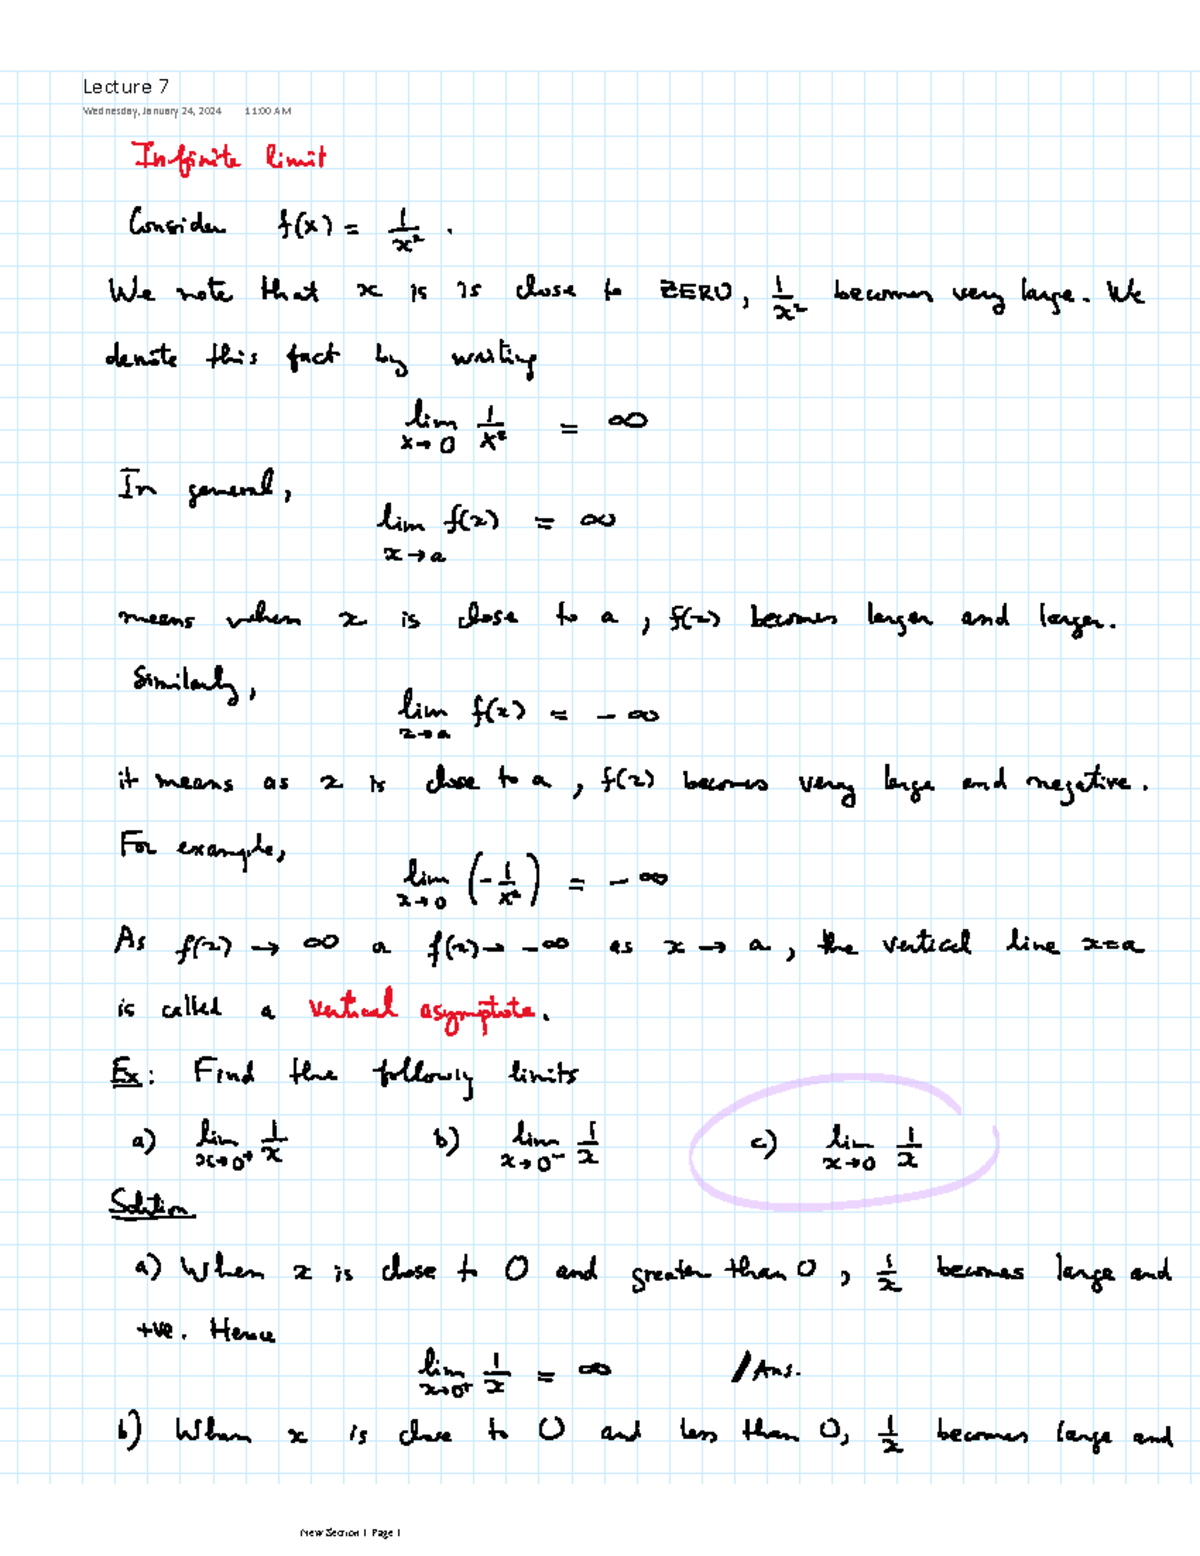 Lecture 7
Wednesday, January 24, 2024 11:00 AM
Infinite limit
Consider f(x) = 1/x² .
We note that x is is close to ZERO, 1/x² becomes very large. We
denote this fact by writing
lim x→0 1/x² = ∞
In general,
lim x→a f(x) = ∞
means when x is close to a, f(x) becomes larger and larger.
Similarly,
lim x→a f(x) = -∞
it means as x is close to a, f(x) becomes very large and negative.
For example,
lim x→0 (-1/x²) = -∞
As f(x) → ∞ or f(x) → -∞ as x → a, the vertical line x=a
is called a vertical asymptote.
Ex: Find the following limits
a) lim x→0⁺ 1/x b) lim x→0⁻ 1/x c) lim x→0 1/x
Solution
a) When x is close to 0 and greater than 0, 1/x becomes large and
+ve. Hence
lim x→0⁺ 1/x = ∞ /Ans.
b) When x is close to 0 and less than 0, 1/x becomes large and
New Section 1 Page 1